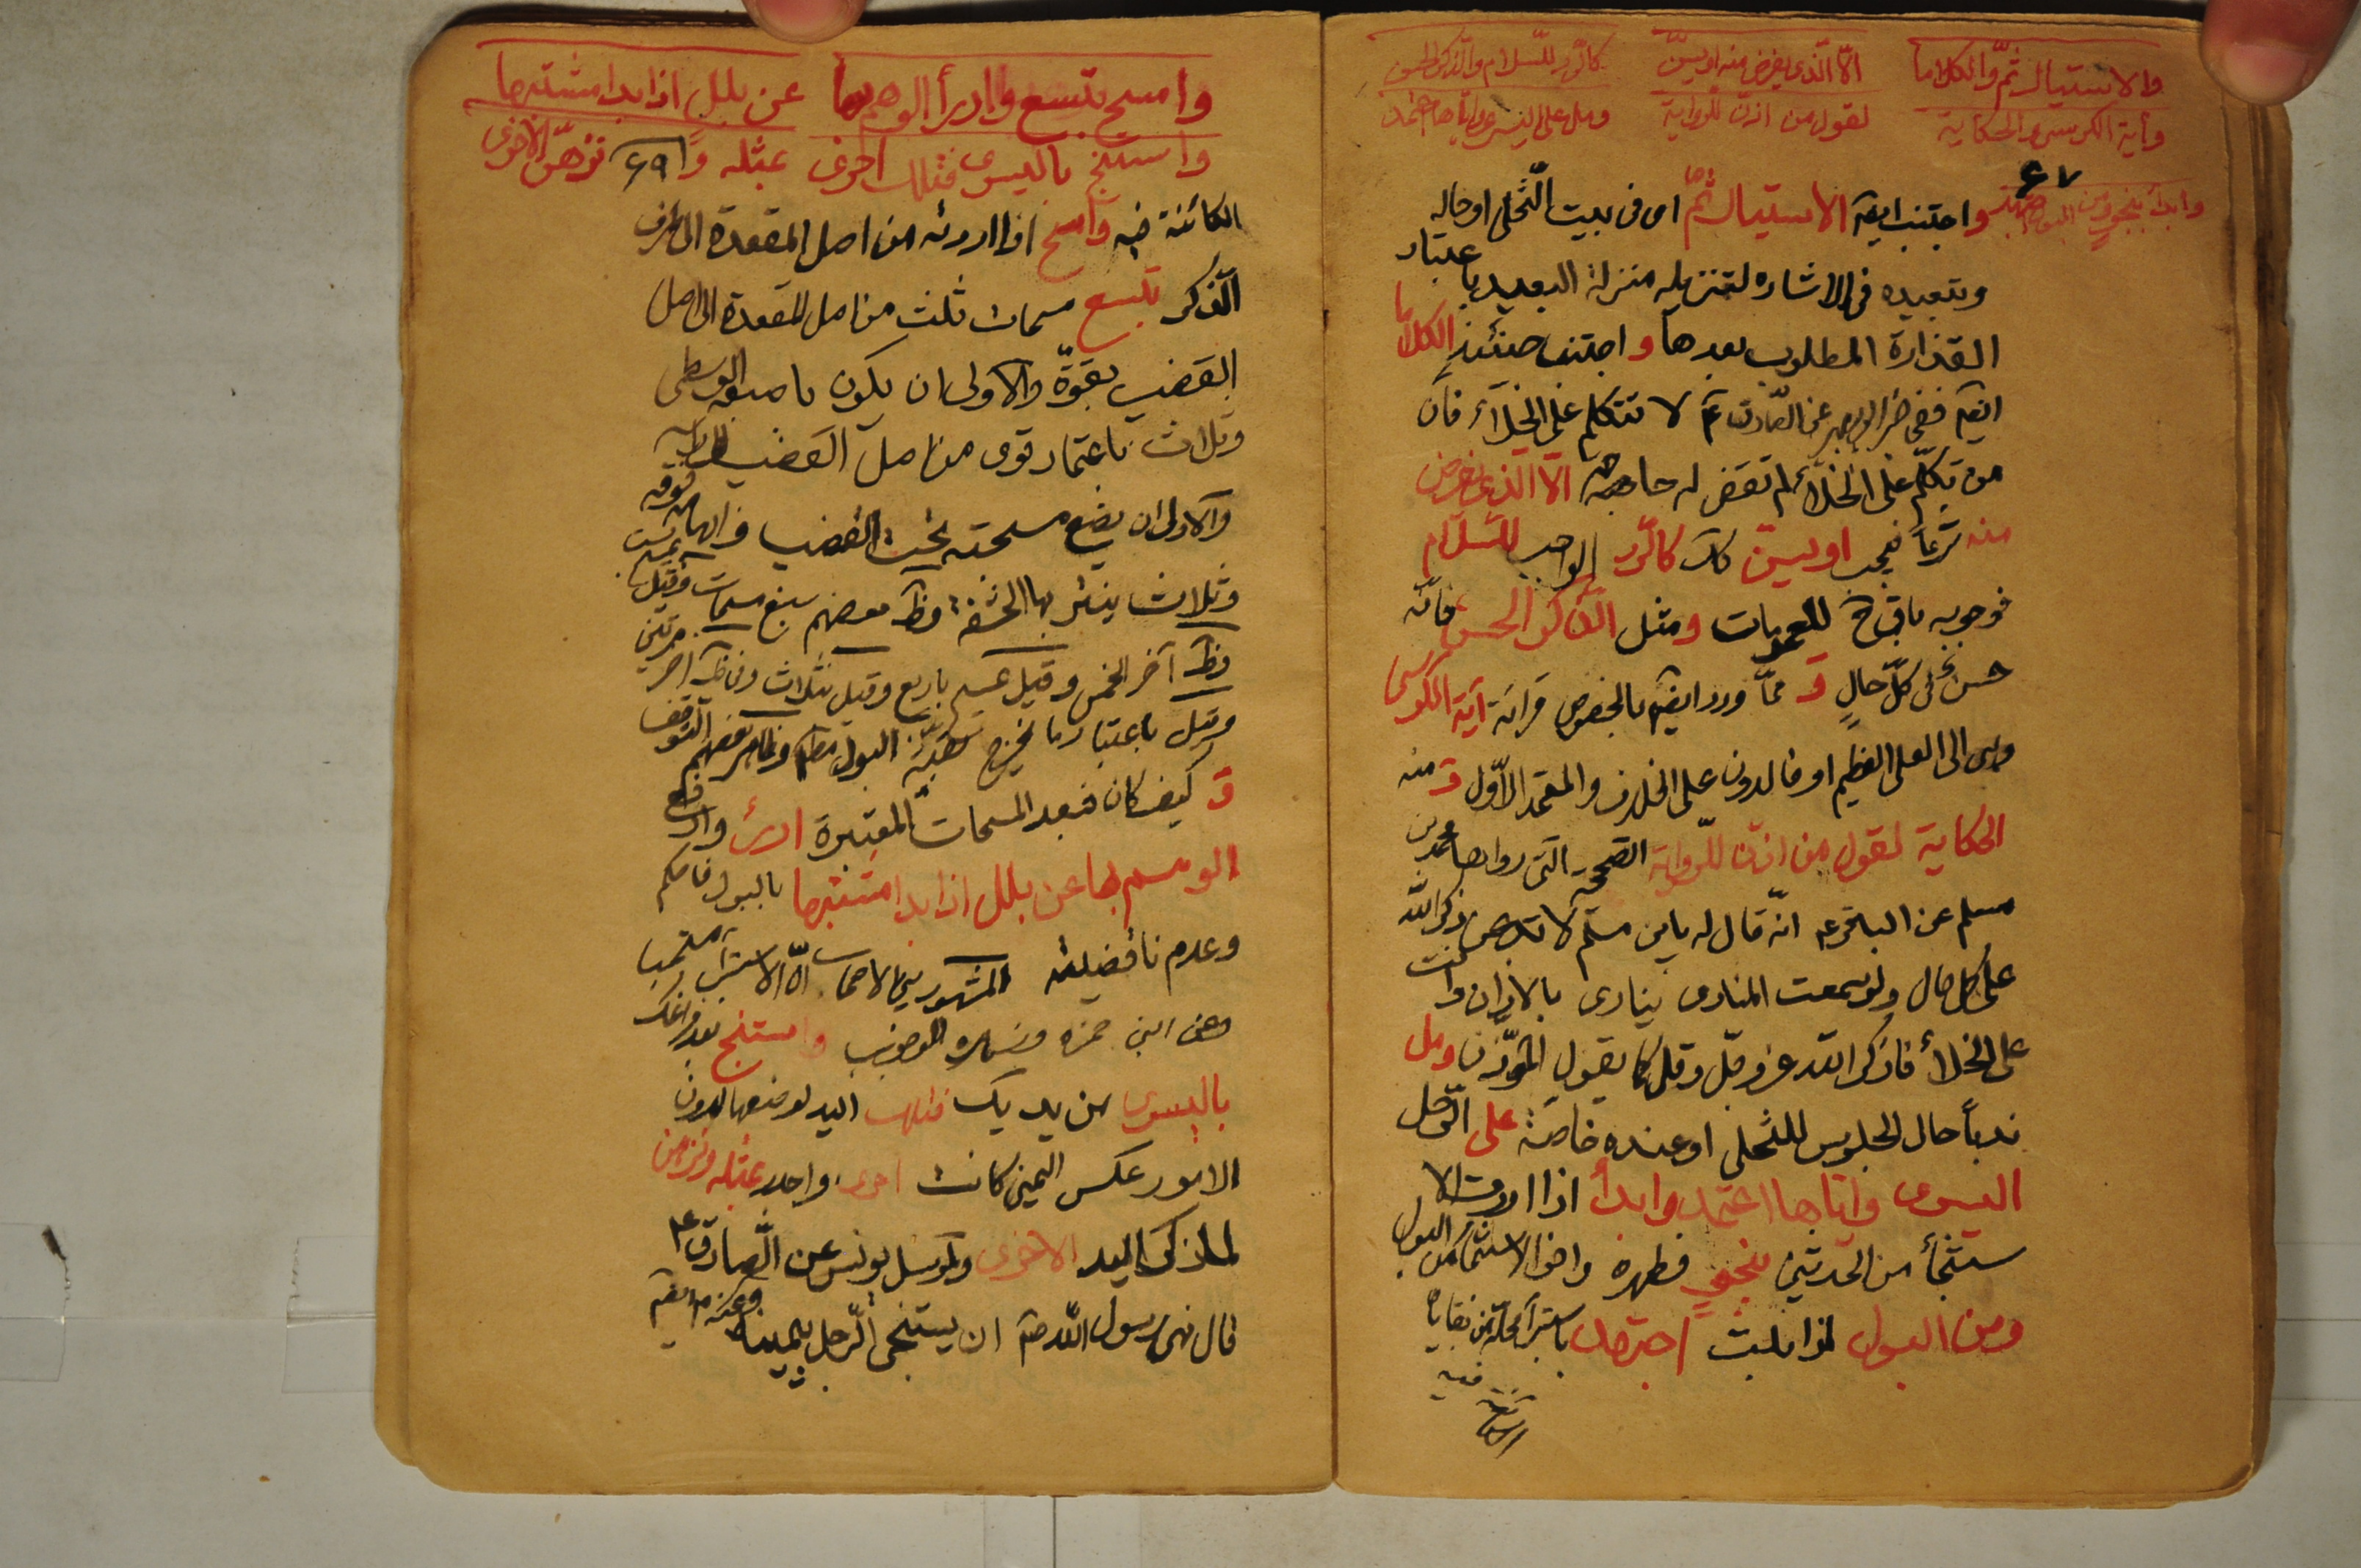 والاستياك ثمّ والكلاما الّا الّذى يفرض منه او يسنّ كالرّد للسّلام والذّكر الحسن
وآية الكرسىّ والحكاية لقول من اذّن للرّواية ومل على اليسرى وايّاها اعتمد
وابدأ بنجو ومن البول اجتهد
٤٧
واجتنب ايضا الاستياك ثمّ اى فى بيت التّخلى او حاله
وتبعيده فى الاشاره لتنزيله منزلة البعيد باعتبار
القذارة المطلوب بعدها واجتنب حينئذ الكلاما
ايضا ففى خبر ابى بصير عن الصّادق ع لا تتكلم على الخلآء فانّ
من تكلّم على الخلآء لم تقض له حاجة الّا الذى يفرض
منه شرعا فيجب او يسنّ كالرّد الواجب للسّلام
فوجوبه باق ح للعمومات ومثل الذّكر الحسن فانّه
حسن على كلّ حالٍ و ممّا ورد ايضا بالخصوص قرائة آية الكرسى
وهى الى العلى العظيم او خالدون على الخلاف والمعتمد الاوّل و منه
الحكاية لقول من اذّن للرّواية الصحيحة الّتى رواها محمد بن
مسلم عن الباقر ع انّه قال له يابن مسلم لا تدعن ذكر الله
على كل حال ولو سمعت المنادى ينادى بالاذان وانت
على الخلأ فاذكر الله عزّ وجلّ وقل كما يقول المؤذّن ومل
ندباً حال الجلوس للتخلى او عنده خاصّة على الرّجل
اليسرى وايّاها اعتمد وابدأ اذا اردت الا
ستنجأ من الحدثين بنجو فطهره واخر الاستنجاء من البول
ومن البول اذا بلت اجتهد باستبرآء محلّه من بقاياه
فيه
الكائنة
وامسح بتسع وادرأ الوهم بها عن بلل اذا بدا مشتبها
واستنج باليسرى فتلك احرى بمثله و ٤٩ نزهنّ الاخرى
الكائنة فيه وامسح اذا اردته من اصل المقعدة الى طرف
الذّكر بتسع مسحات ثلث من اصل المقعدة الى اصل
القضيب بقوّة والاولى ان يكون باصبعه الوسطى
وثلاث باعتماد قوى من اصل القضيب الى راسه
والاولى ان يضع مسبحته تحت القضيب وابهامه فوقه
وثلاث ينتر بها الحشفة وظ بعضهم سبع مسحات وقيل بست
وظ آخر الخمس وقيل باربع وقيل بثلاث وظ آخر مرّتين
وقيل باعتبار ما يخرج البول مطلقا وظاهر بعضهم التوقف
و كيف كان فبعد المسحات المعتبرة ادرئ وادفع
الوهم بها عن بلل اذا بدا مشتبها بالبول فاحكم
وعدم ناقضيته المشهور بين الاصحاب انّ الاستبرآء مستحب
وعن ابن حمزه وزهره الوجوب واستنج بعد فراغك
باليسرى من يديك فتلك اليد لوضعها لدون
الامور عكس اليمنى كانت احرى واجدر بمثله ونزهن
لما ذكر اليد الاخرى ولمرسل يونس عن الصّادق ع
قال نهى رسول الله ص ان يستنجى الرّجل بيمينه وعنه ع ايضا